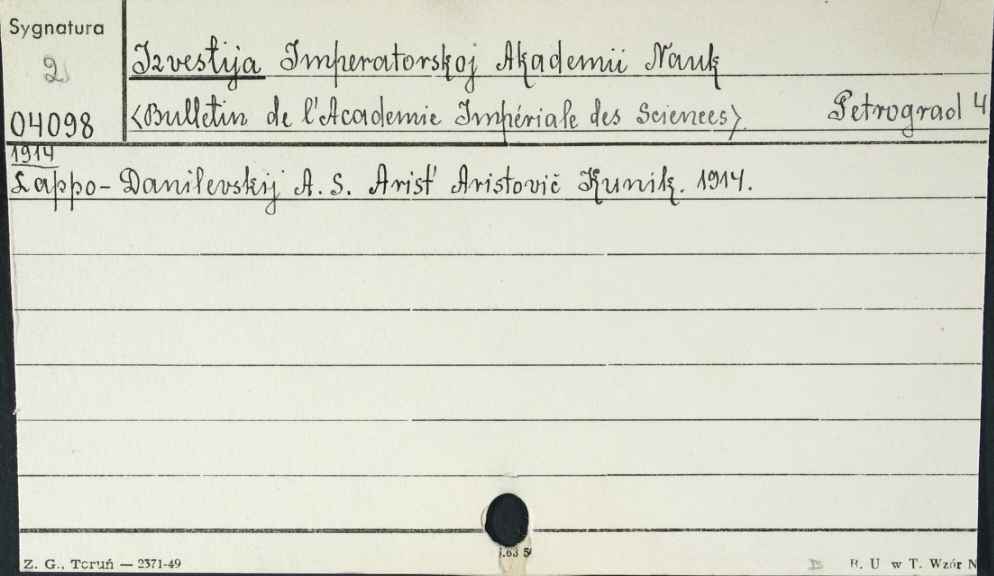 Sygnatura
2
Izvestija Imperatorskoj Akademii Nauk
04098 <Bulletin de l'Academie Impériale des Sciences> Petrograd 4
1914
Lappo-Danilevskij A. S. Arist' Aristovič Kunik. 1914.
Z. G., Toruń — 2371-49
B. U w T. Wzór N